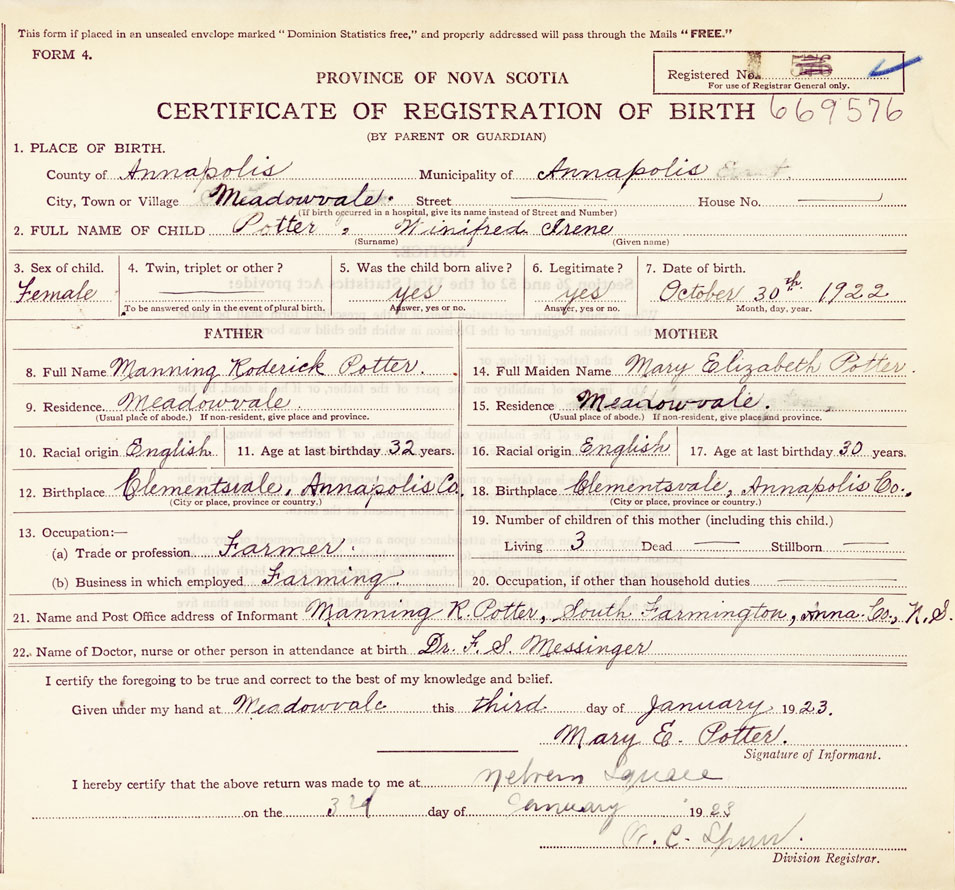 This form if placed in an unsealed envelope marked "Dominion Statistics free," and properly addressed will pass through the Mails "FREE."
FORM 4.
Registered No.
For use of Registrar General only.
PROVINCE OF NOVA SCOTIA
CERTIFICATE OF REGISTRATION OF BIRTH 669576
(BY PARENT OR GUARDIAN)
1. PLACE OF BIRTH.
County of Annapolis Municipality of Annapolis
City, Town or Village Meadowvale. Street House No.
(If birth occurred in a hospital, give its name instead of Street and Number)
2. FULL NAME OF CHILD Potter, Winifred Irene
(Surname) (Given name)
3. Sex of child. 4. Twin, triplet or other? 5. Was the child born alive? 6. Legitimate? 7. Date of birth.
Female yes yes October 30th 1922
To be answered only in the event of plural birth. Answer, yes or no. Answer, yes or no. Month, day, year.
FATHER MOTHER
8. Full Name Manning Roderick Potter. 14. Full Maiden Name Mary Elizabeth Potter.
9. Residence. Meadowvale 15. Residence Meadowvale.
(Usual place of abode.) If non-resident, give place and province. (Usual place of abode.) If non-resident, give place and province.
10. Racial origin English 11. Age at last birthday 32 years. 16. Racial origin English 17. Age at last birthday 30 years.
12. Birthplace Clementsvale, Annapolis Co. 18. Birthplace Clementsvale, Annapolis Co.
(City or place, province or country.) (City or place, province or country.)
13. Occupation:— 19. Number of children of this mother (including this child.)
(a) Trade or profession Farmer. Living 3 Dead Stillborn
(b) Business in which employed Farming. 20. Occupation, if other than household duties
21. Name and Post Office address of Informant Manning R. Potter, South Farmington, Anna. Co., N.S.
22. Name of Doctor, nurse or other person in attendance at birth Dr. F. S. Messinger
I certify the foregoing to be true and correct to the best of my knowledge and belief.
Given under my hand at Meadowvale this third day of January, 1923.
Mary E. Potter.
Signature of Informant.
I hereby certify that the above return was made to me at Melvern Square
on the 3rd day of January 1923
C. Spurr.
Division Registrar.